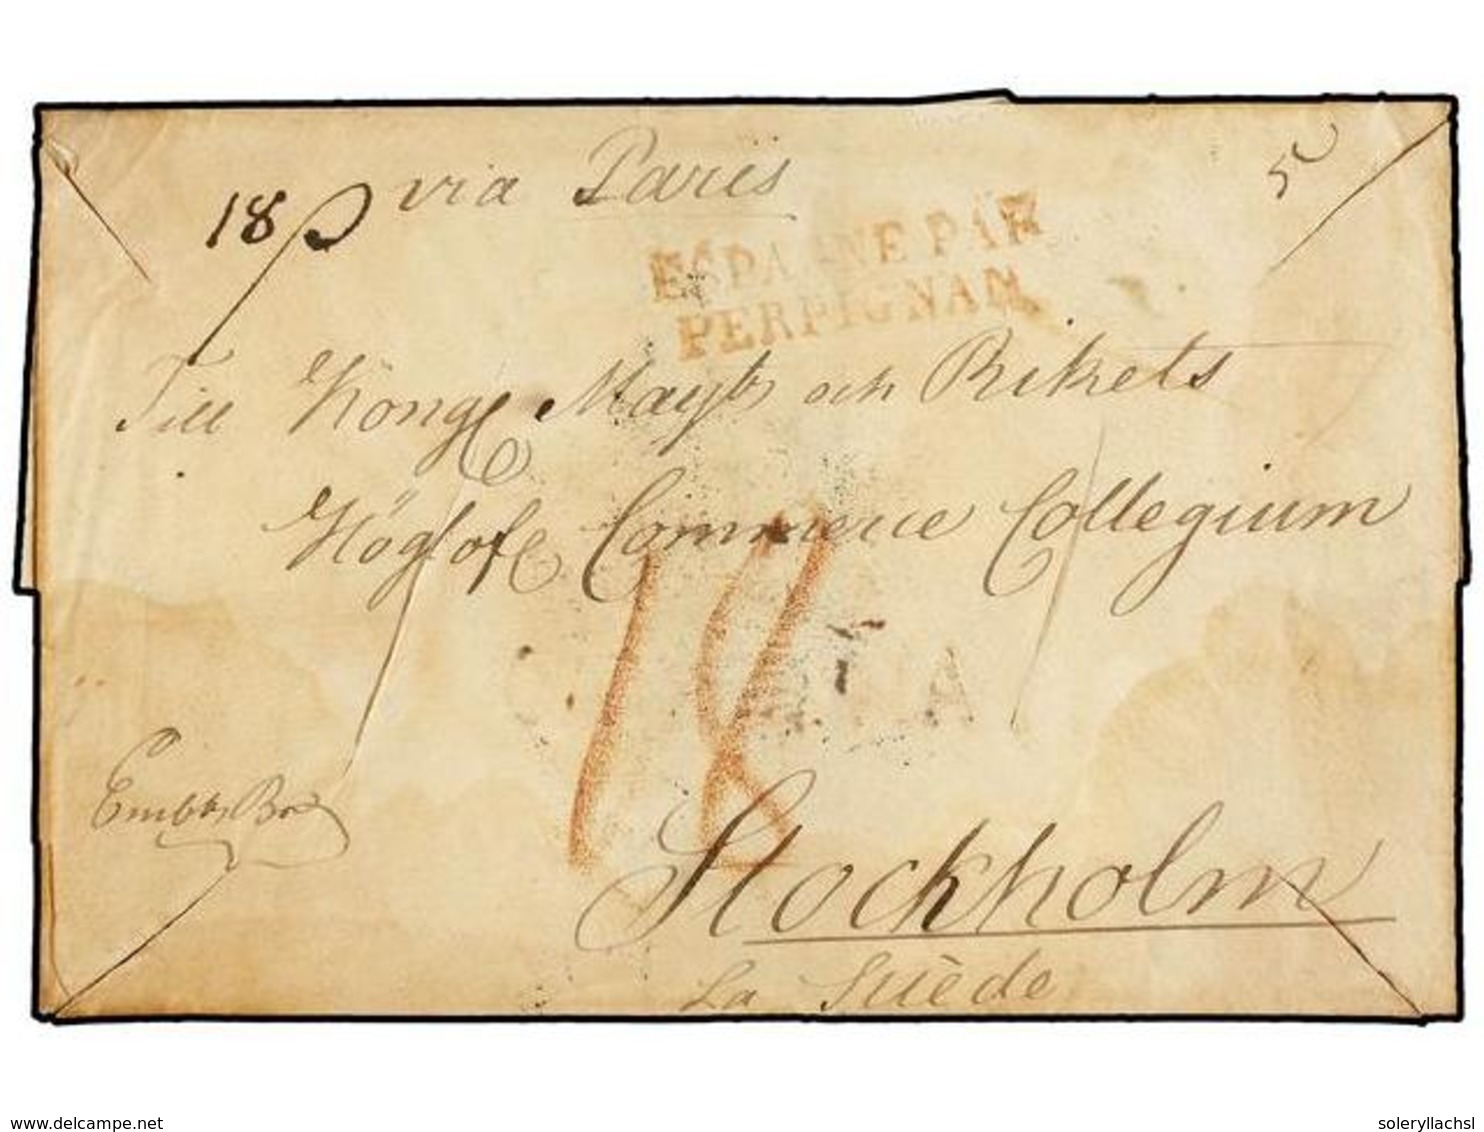 via Paris
5
18
ESPAGNE PAR
PERPIGNAN
Till Kongl Mayts och Rikets
Höglofl Commerce Collegium
18
Stockholm
La Suède
delcampe.net
soleryllachsl